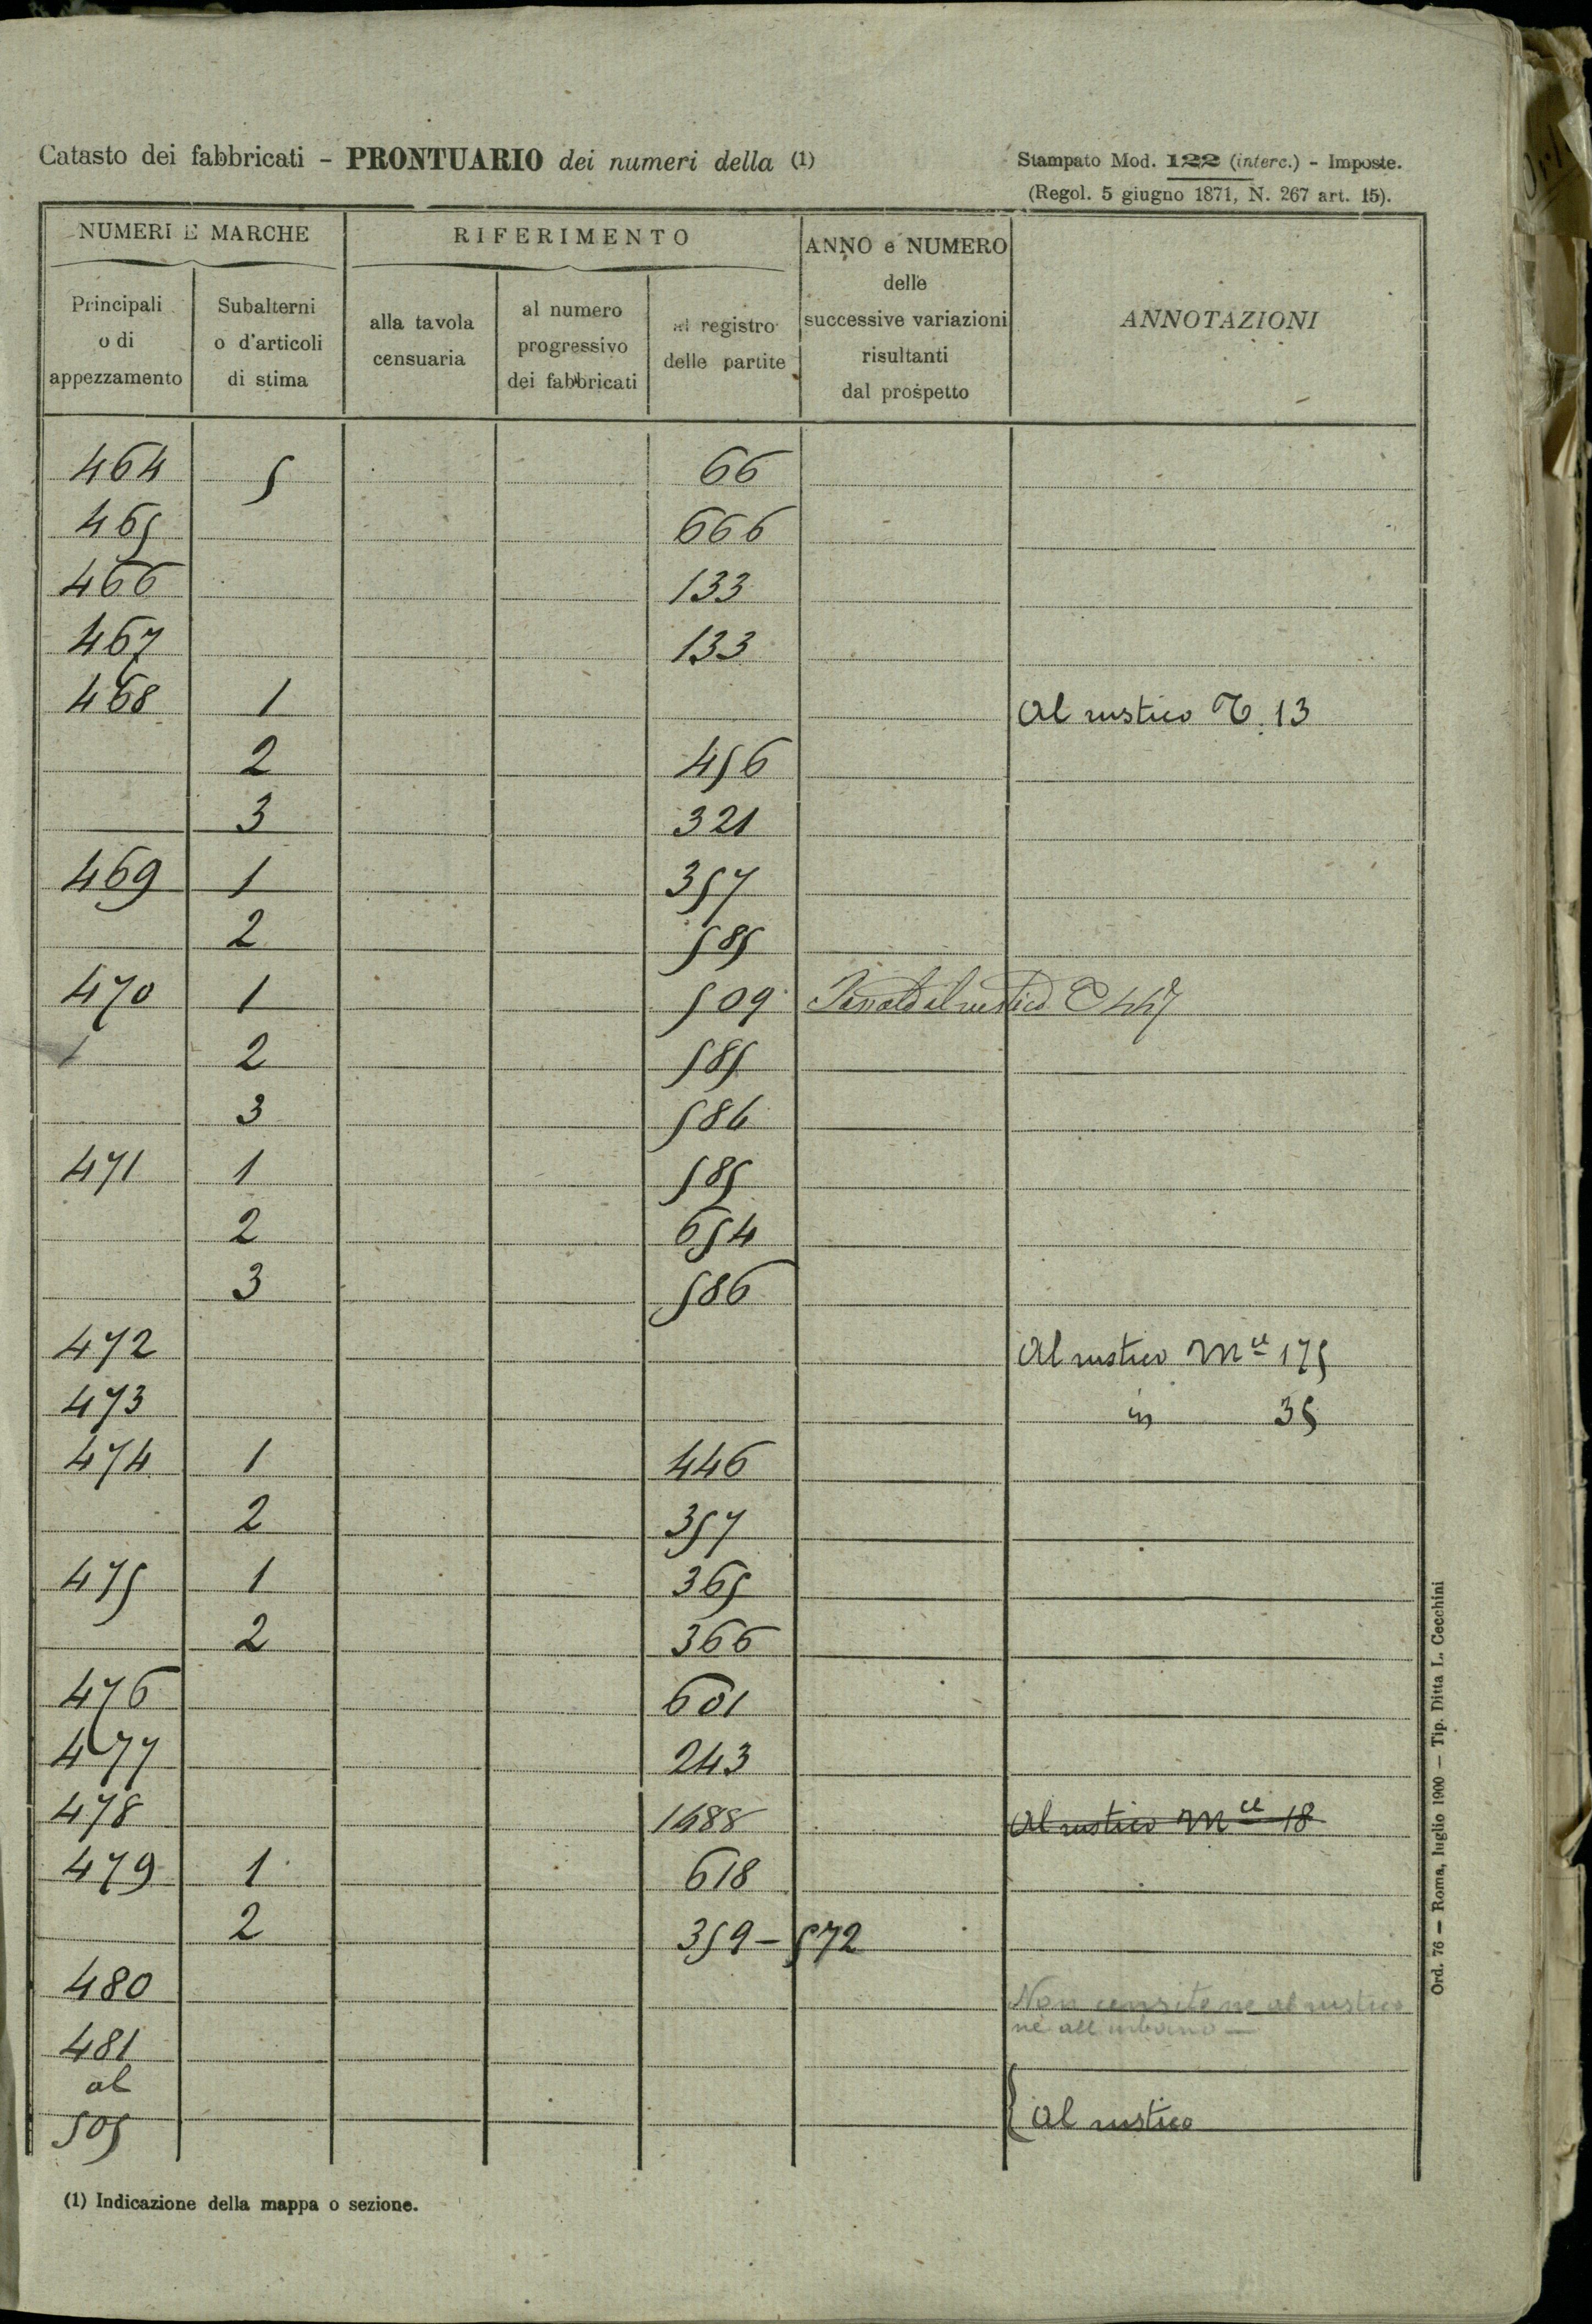 Catasto dei fabbricati - PRONTUARIO dei numeri della (1)
Stampato Mod. 122 (interc.) - Imposte.
(Regol. 5 giugno 1871, N. 267 art. 15).
NUMERI E MARCHE
RIFERIMENTO
ANNO e NUMERO
delle
successive variazioni
risultanti
dal prospetto
ANNOTAZIONI
Principali
o di
appezzamento
Subalterni
o d'articoli
di stima
alla tavola
censuaria
al numero
progressivo
dei fabbricati
al registro
delle partite
464 5 66
465 666
466 133
467 133
468 1 Al rustico T. 13
2 456
3 321
469 1 357
2 585
470 1 509 Passato al rustico C 447
2 585
3 586
471 1 585
2 654
3 586
472 Al rustico Mce 175
473 in 35
474 1 446
2 357
475 1 365
2 366
476 601
477 243
478 1688 Al rustico Mce 18
479 1 618
2 359 - 572
480 Non censito ne al rustico
né all'urbano -
481
al
505 Al rustico
(1) Indicazione della mappa o sezione.
Ord. 76 — Roma, luglio 1900 — Tip. Ditta L. Cecchini